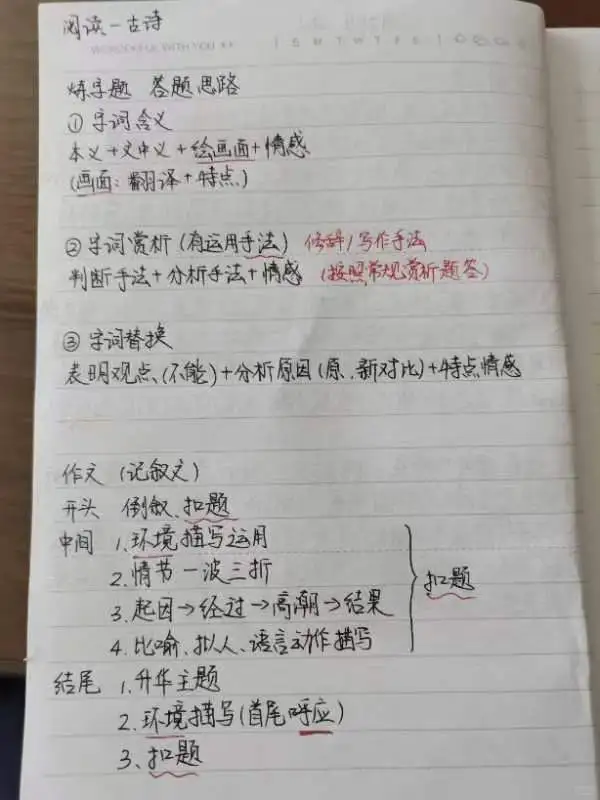 阅读-古诗
WONDERFUL WITH YOU
S M T W T F S
炼字题 答题思路
① 字词含义
本义+文中义+绘画面+情感
(画面:翻译+特点)
② 字词赏析(有运用手法) 修辞/写作手法
判断手法+分析手法+情感 (按照常规赏析题答)
③ 字词替换
表明观点(不能)+分析原因(原、新对比)+特点情感
作文 (记叙文)
开头 倒叙、扣题
中间 1.环境描写运用
2.情节一波三折
3.起因→经过→高潮→结果
4.比喻、拟人、语言动作描写
扣题
结尾 1.升华主题
2.环境描写(首尾呼应)
3、扣题